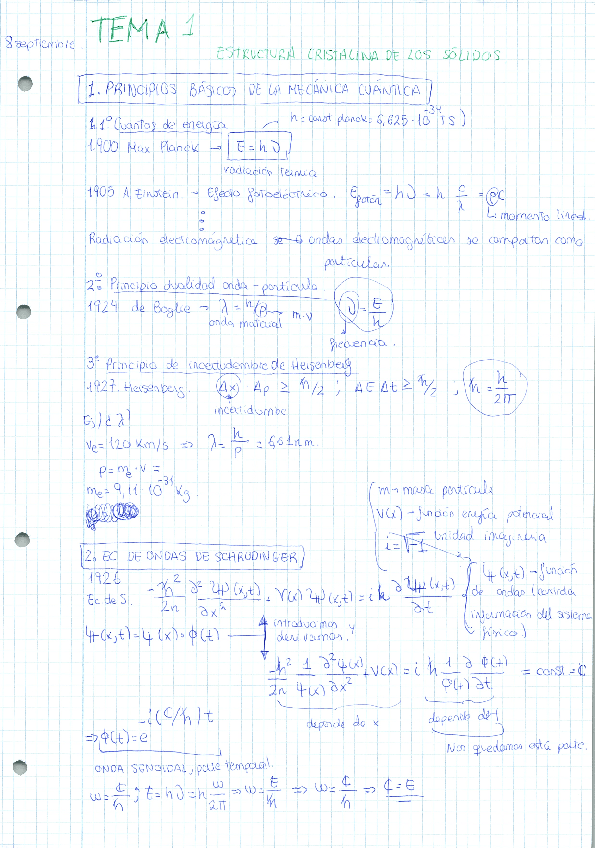 8 septiembre.
TEMA 1
ESTRUCTURA CRISTALINA DE LOS SÓLIDOS
1. PRINCIPIOS BÁSICOS DE LA MECÁNICA CUÁNTICA
1.1º Cuantos de energía
h = const planck = 6,625·10^-34 J S)
1900 Max Planck → E = hν
radiación térmica
1905 A. Einstein. → Efecto fotoeléctrico. E_fotón = hν = h c/λ = pc
↳ momento lineal.
Radiación electromagnética → ondas electromagnéticas se comportan como
partículas.
2º Principio dualidad onda-partícula
1924 de Boglie → λ = h/p → m·v
ν = E/h
onda material
frecuencia.
3º Principio de incertudembre de Heisenberg
1927. Heisenberg. Δx Δp ≥ ħ/2 ; ΔE Δt ≥ ħ/2 ; ħ = h/2π
incertidumbre
Ej) ¿λ)
Ve = 120 Km/s ⇒ λ = h/p = 6,01nm.
p = me·v =
me = 9,11·10^-31 Kg.
m → masa partícula
V(x) → función energía potencial
i = √-1 unidad imaginaria
2. EC DE ONDAS DE SCHRUDINGER
Ψ(x,t) → función
de ondas (contiene
información del sistema
físico)
1926
Ec de S. -ħ²/2m ∂²Ψ(x,t)/∂x² + V(x) Ψ(x,t) = iħ ∂Ψ(x,t)/∂t
Ψ(x,t) = ψ(x)·Φ(t)
introducimos y
derivamos.
-ħ²/2m 1/ψ(x) ∂²ψ(x)/∂x² + V(x) = i ħ 1/φ(t) ∂φ(t)/∂t = const = ₵
depende de x
depende de t
⇒ φ(t) = e^-i(₵/ħ)t
Nos quedamos esta parte.
ONDA SENOIDAL, parte temporal.
ω = ₵/ħ ; E = hν = h ω/2π ⇒ ω = E/ħ ⇒ ω = ₵/ħ ⇒ ₵ = E